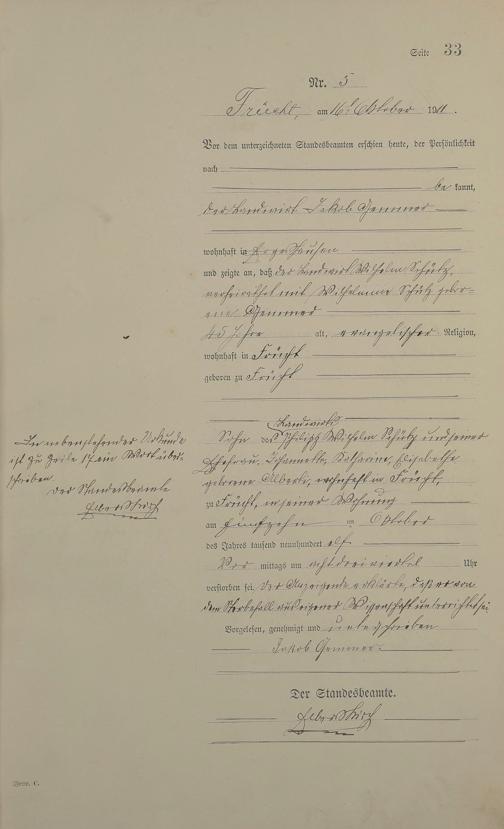 Seite 33
Nr. 5
Frücht, am 16t Oktober 1911.
Vor dem unterzeichneten Standesbeamten erschien heute, der Persönlichkeit
nach
be kannt,
der Landwirt Jakob Gemmer
wohnhaft in
und zeigte an, daß der Landwirt Wilhelm Schütz,
verheirathet mit Wilhelmine Schütz gebor-
ene Gemmer
45 Jahre alt, evangelischer Religion,
wohnhaft in Frücht
geboren zu Frücht
Landwirts
Sohn des Philipp Wilhelm Schütz und seiner
Ehefrau, Johannette, Katharine, Elisabethe
geborene Alberti, wohnhaft in Frücht,
zu Frücht, in seiner Wohnung
am fünfzehn Oktober
des Jahres tausend neunhundert elf
Vor mittags um acht dreiviertel Uhr
verstorben sei. Der Anzeigende erklärte, daß er von
dem Sterbefall aus eigener Wissenschaft unterrichtet sei
Vorgelesen, genehmigt und unterschrieben
Jakob Gemmer.
Der Standesbeamte.
Elbersskirch
In nebenstehender Urkunde
ist zu Zeile ein Wort über-
schrieben
Der Standesbeamte
Elbersskirch
C.